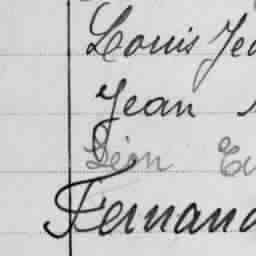 Louis Jea
Jean
Léon Eu
Fernand